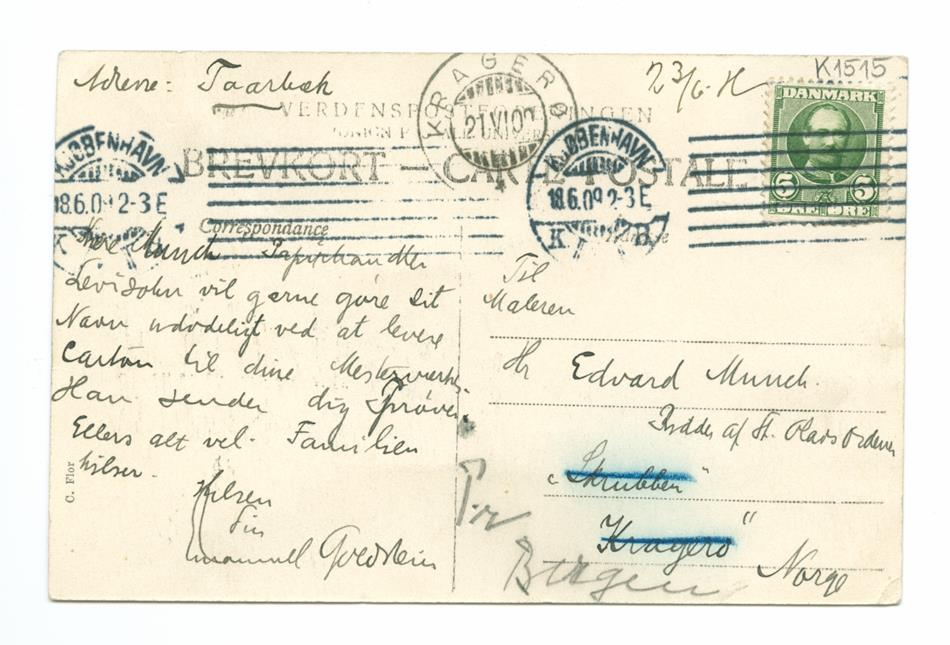 Adresse: Taarbæk
K1515
23/6 - K
KRAGERØ
21 VI 09
DANMARK
5 5
ØRE ØRE
VERDENSPOSTFORENINGEN
BREVKORT — CARTE POSTALE
KJØBENHAVN
18.6.09 2-3 E
K
KJØBENHAVN
18.6.09 2-3 E
K. KB
Correspondance
Kære Munch Papirhandler
Levisohn vil gerne gøre Dit
Navn udødeligt ved at levere
Carton til dine Mesterværker
Han sender dig Prøver
Ellers alt vel. Familien
hilser.
Hilsen
Din
Emanuel Goldstein
C. Flor
Til
Maleren
Hr Edvard Munch.
Ridder af St. Olavs Ordenen
"Skrubben"
Kragerø"
Norge
Bergen